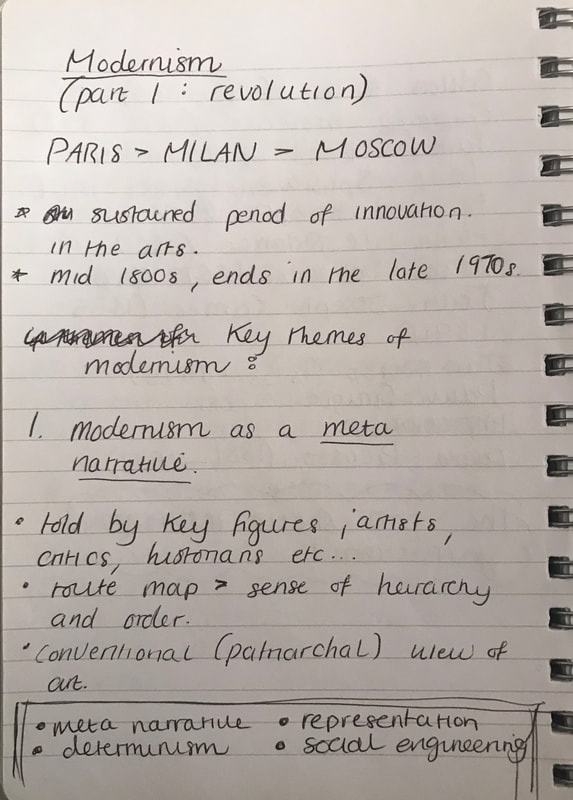 Modernism
(part 1 : revolution)
PARIS > MILAN > MOSCOW
* sustained period of innovation.
in the arts.
* mid 1800s, ends in the late 1970s.
Key themes of
modernism :
1. modernism as a meta
narrative.
• told by key figures ; artists,
critics, historians etc...
• route map > sense of heirarchy
and order.
• conventional (patriarchal) view of
art.
• meta narrative • representation
• determinism • social engineering